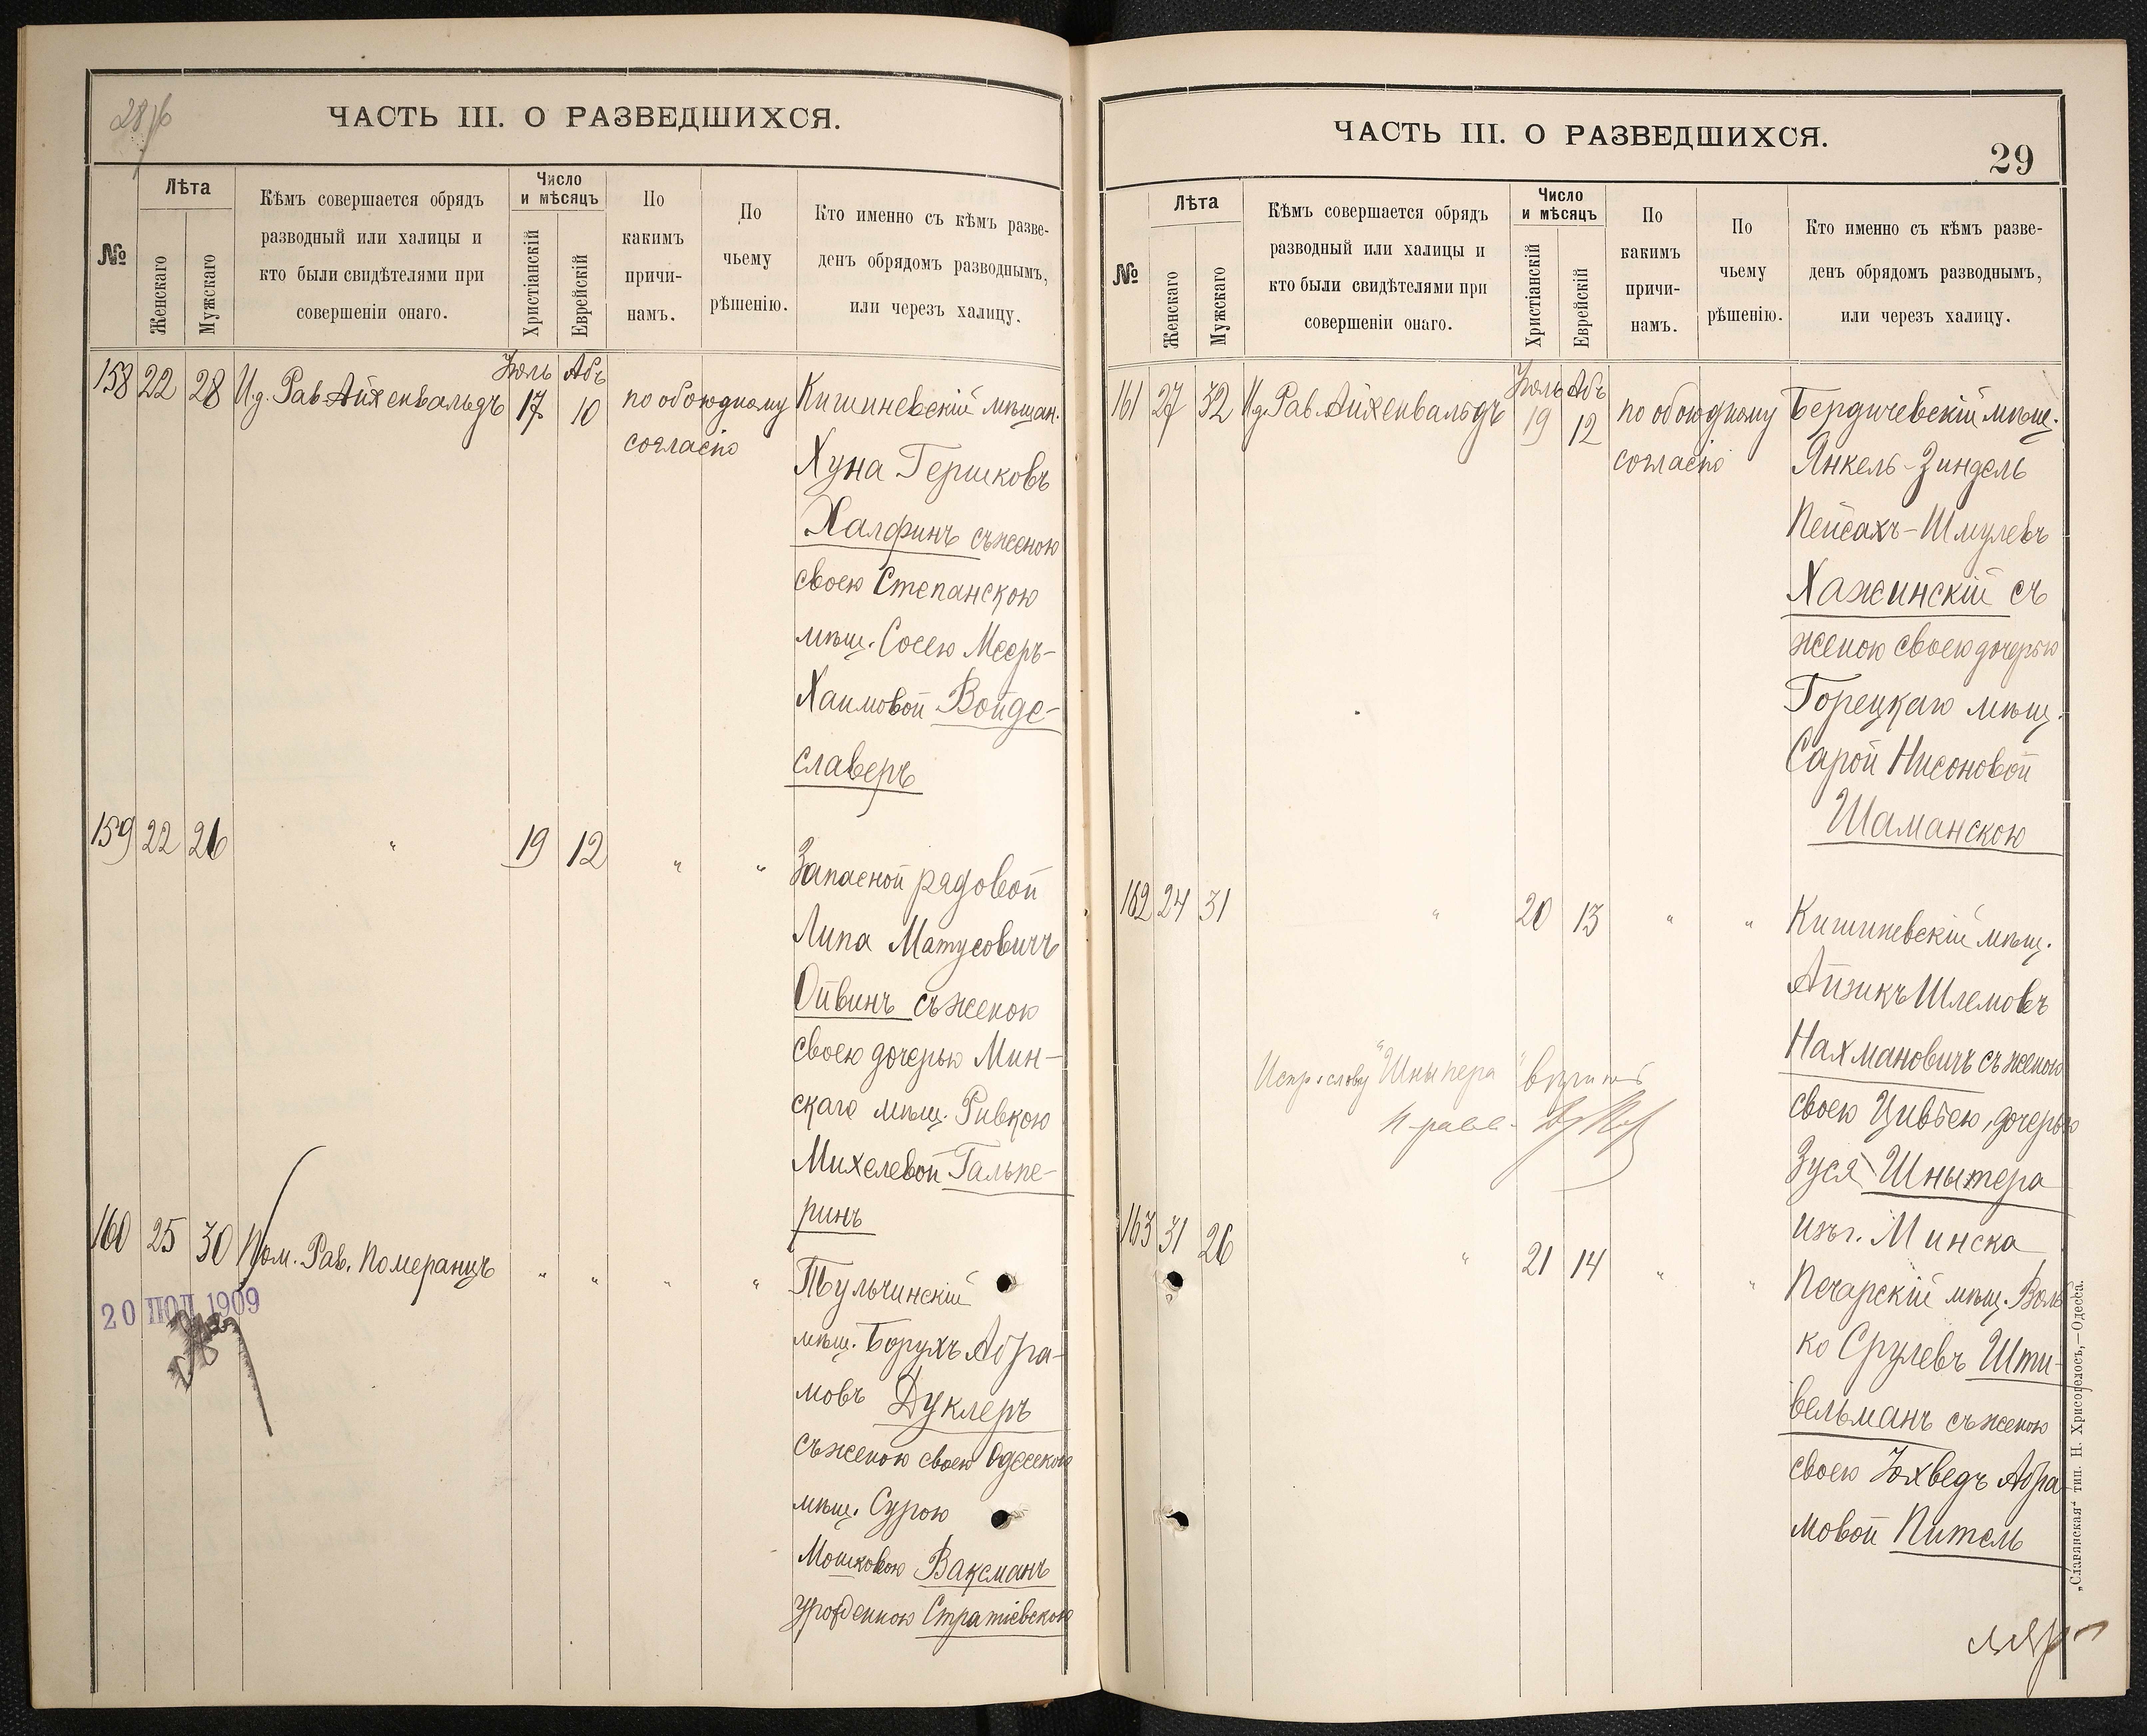 28
ЧАСТЬ III. О РАЗВЕДШИХСЯ.
№
Лѣта
Женскаго
Мужскаго
Кѣмъ совершается обрядъ
разводный или халицы и
кто были свидѣтелями при
совершеніи онаго.
Число
и мѣсяцъ
Христіанскій
Еврейскій
По
какимъ
причи-
намъ.
По
чьему
рѣшенію.
Кто именно съ кѣмъ разве-
денъ обрядомъ разводнымъ,
или черезъ халицу.
Іюль Абъ
158 22 28 И.д. Рав. Айхенвальдъ 17 10 по обоюдному Кишиневскій мѣщан.
согласію
Хуна Гершковъ
Халфинъ съ женою
своею Степанскою
мѣщ. Сосею Мееръ-
Хаимовой Войде-
славеръ
159 22 26 " 19 12 " " Запасной рядовой
Липа Матусовичъ
Ойвинъ съ женою
своею дочерью Мин-
скаго мѣщ. Ривкою
Михелевой Гальпе-
ринъ
160 25 30 Пом. Рав. Померанцъ " " " " Тульчинскій
мѣщ. Борухъ Абра-
мовъ Дуклеръ
съ женою своею Одесскою
мѣщ. Сурою
Мошковою Ваксманъ
урожденною Стратіевскою
20 ІЮЛ 1909
ЧАСТЬ III. О РАЗВЕДШИХСЯ.
29
№
Лѣта
Женскаго
Мужскаго
Кѣмъ совершается обрядъ
разводный или халицы и
кто были свидѣтелями при
совершеніи онаго.
Число
и мѣсяцъ
Христіанскій
Еврейскій
По
какимъ
причи-
намъ.
По
чьему
рѣшенію.
Кто именно съ кѣмъ разве-
денъ обрядомъ разводнымъ,
или черезъ халицу.
Іюль Абъ
161 27 32 И.д. Рав. Айхенвальдъ 19 12 по обоюдному Бердичевскій мѣщ.
согласію
Янкель-Зиндель
Пейсахъ-Шмулевъ
Хажинскій съ
женою своею дочерью
Горецкаго мѣщ.
Сарой Нисоновой
Шаманскою
162 24 31 " 20 13 " " Кишиневскій мѣщ.
Айзикъ Шлемовъ
Нахмановичъ съ женою
своею Цивьею, дочерью
Зуся Шнытера
изъ г. Минска
Испр. слову
163 31 26 " 21 14 " " Печарскій мѣщ. Воль
ко Срулевъ Шти-
вельманъ съ женою
своею Юхведъ Абра
мовой Питель
„Славянская“ тип. Н. Хрисогелосъ,—Одесса.